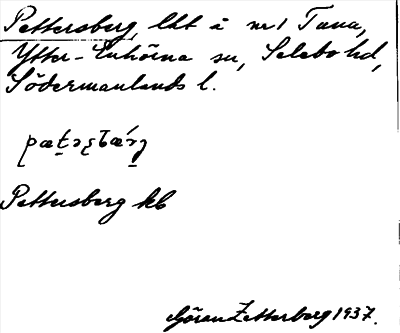 Pettersberg, lht å nr 1 Tuna,
Ytter-Enhörna sn, Selebo hd,
Södermanlands l.
Pettersberg kb
Göran Zetterberg 1937.